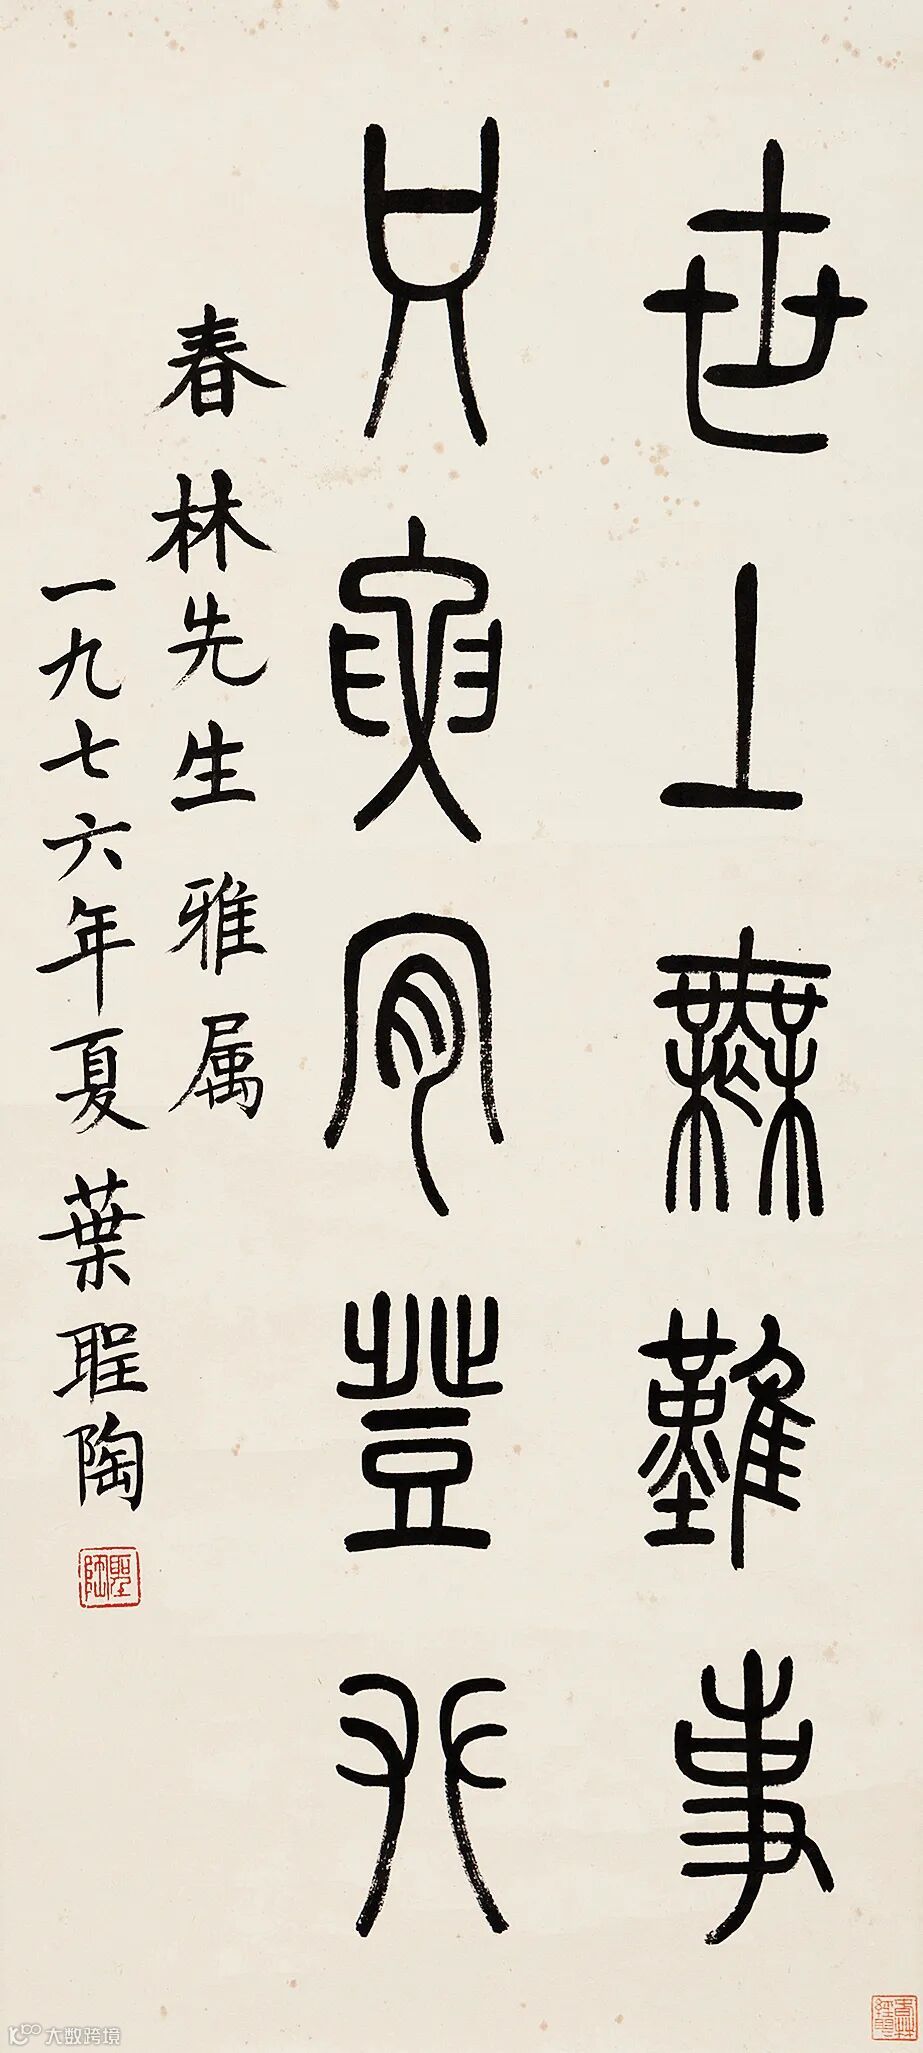 世上無難事
只要肯登攀
春林先生雅属
一九七六年夏 葉聖陶
聖陶
大数跨境